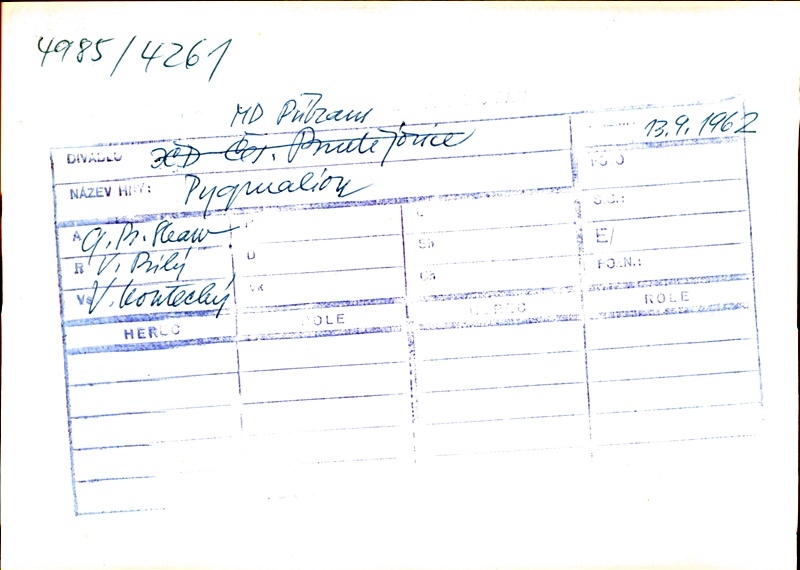 4985/4261
MD Příbram
DIVADLO
13.9.1962
NÁZEV HRY: Pygmalion
A G. B. Shaw
S
R V. Bílý
D
Sb
E/
Vs V. Koutecký
Vk
Ch
POZN.:
HEREC ROLE HEREC ROLE